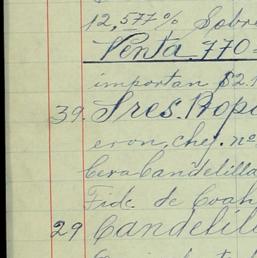 12,577% Sobre
Venta 770-
importan $2.1
39. Sres. Propi
eron, chef. no
Cera Candelilla
Fid. de Coah
29 Candelill